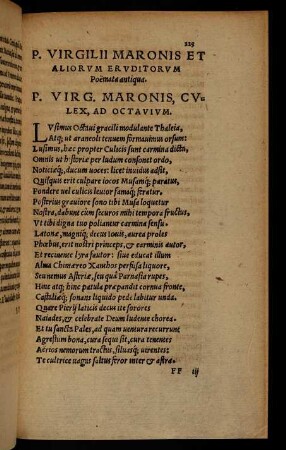 223
P. VIRGILII MARONIS ET
ALIORVM ERVDITORVM
Poëmata antiqua.
P. VIRG. MARONIS, CV-
LEX, AD OCTAVIVM.
LVsimus Octaui gracili modulante Thaleia,
Atq; ut araneoli tenuem formauimus orsum:
Lusimus, hac propter Culicis sunt carmina dicta,
Omnis ut historiæ per ludum consonet ordo,
Notitiaq́;, ducum uoces: licet inuidus adsit,
Quisquis erit culpare iocos Musamq́; paratus,
Pondere uel culicis leuior famaq́; feratur.
Posterius grauiore sono tibi Musa loquetur
Nostra, dabunt cum securos mihi tempora fructus,
Vt tibi digna tuo poliantur carmina sensu.
Latonæ, magniq́; decus Iouis, aurea proles
Phœbus, erit nostri princeps, & carminis autor,
Et recinente lyra fautor: siue educat illum
Alma Chimæreo Xanthos perfusa liquore,
Seu nemus Astriæ, seu qua Parnasia rupes,
Hinc atq; hinc patula præpandit cornua fronte,
Castaliæq́; sonans liquido pede labitur unda.
Quare Pierij laticis decus ite sorores
Naiades, & celebrate Deum ludente chorea.
Et tu sancta Pales, ad quam uentura recurrunt
Agrestum bona, cura sequi sit, cura tenentes
Aërios nemorum tractus, siluasq́; uirentes:
Te cultrice uagus saltus feror inter & astra.
FF iij